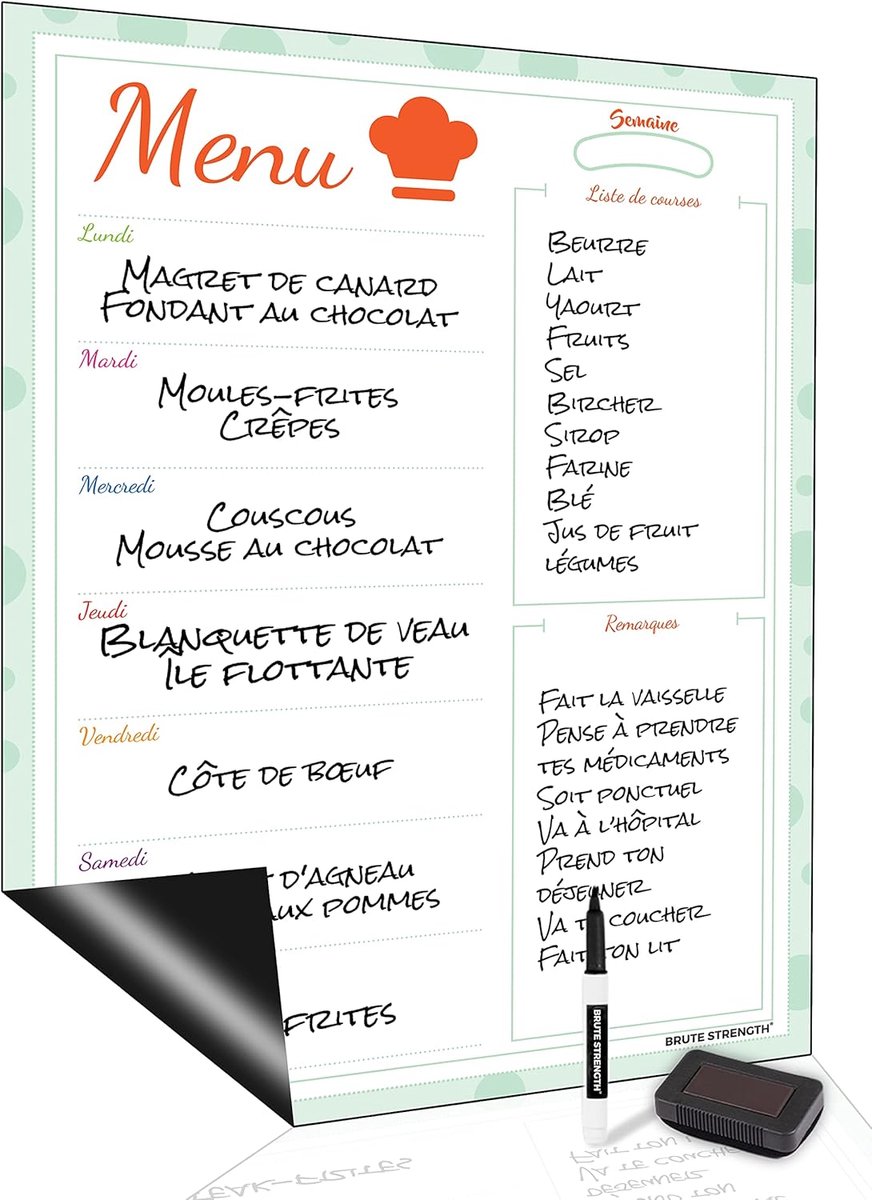 Menu
Lundi
MAGRET DE CANARD
FONDANT AU CHOCOLAT
Mardi
MOULES-FRITES
CRÊPES
Mercredi
COUSCOUS
MOUSSE AU CHOCOLAT
Jeudi
BLANQUETTE DE VEAU
ÎLE FLOTTANTE
Vendredi
CÔTE DE BŒUF
Samedi
D'AGNEAU
AUX POMMES
FRITES
Semaine
Liste de courses
BEURRE
LAIT
YAOURT
FRUITS
SEL
BIRCHER
SIROP
FARINE
BLÉ
JUS DE FRUIT
LÉGUMES
Remarques
FAIT LA VAISSELLE
PENSE À PRENDRE
TES MÉDICAMENTS
SOIT PONCTUEL
VA À L'HÔPITAL
PREND TON
DÉJEUNER
VA TE COUCHER
FAIT TON LIT
BRUTE STRENGTH®
BRUTE STRENGTH®